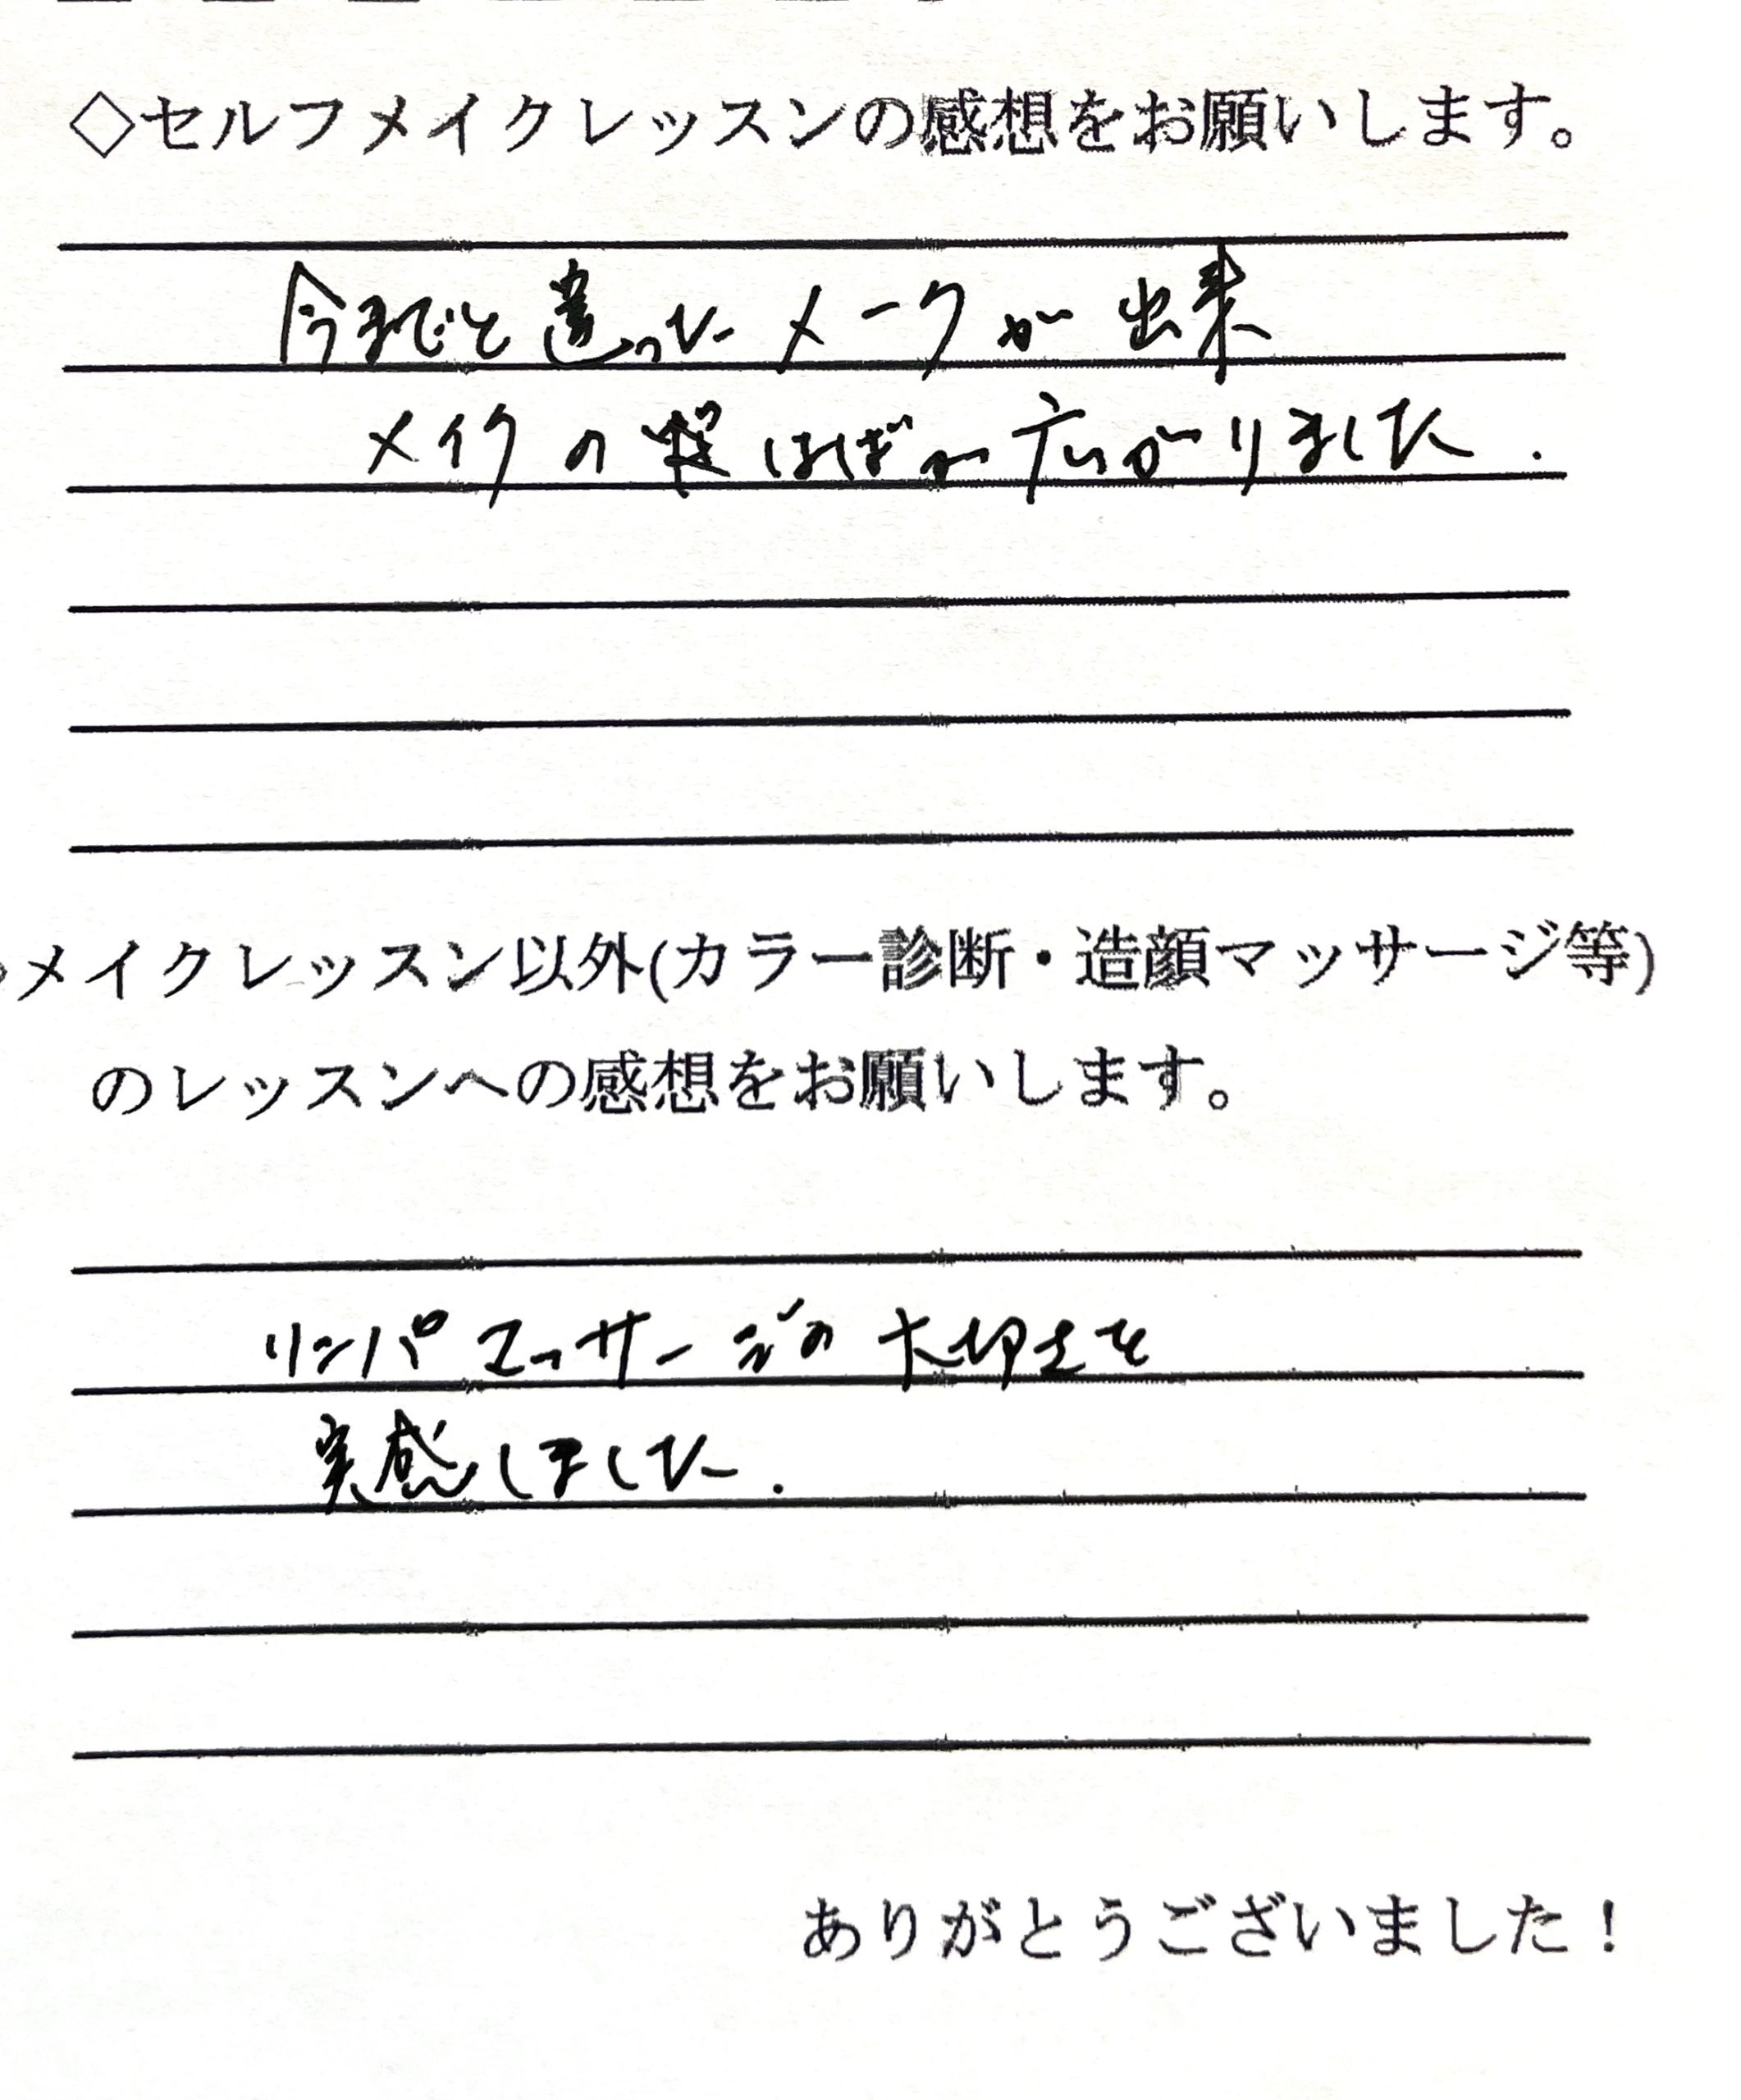 ◇セルフメイクレッスンの感想をお願いします。
今までと違ったメークが出来
メイクの はばが広がりました.
メイクレッスン以外(カラー診断・造顔マッサージ等)
のレッスンへの感想をお願いします。
リンパマッサージの大切さを
実感しました.
ありがとうございました!